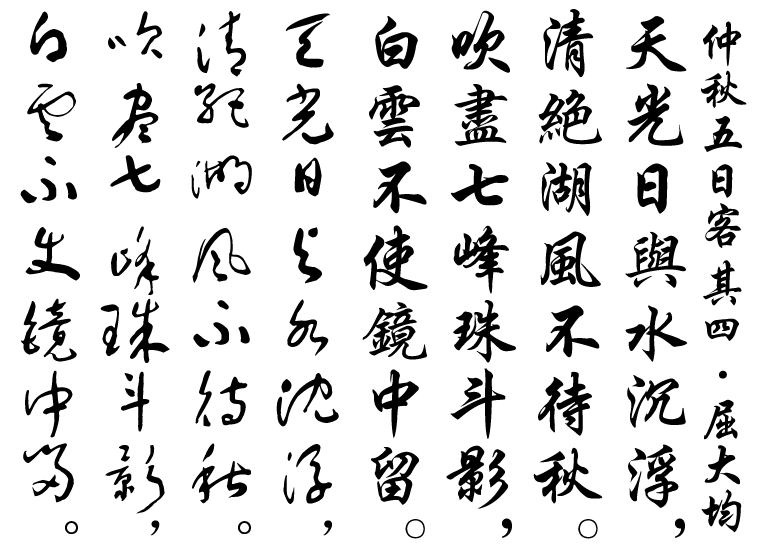 仲秋五日客其四·屈大均
天光日與水沉浮，
清絕湖風不待秋。
吹盡七峰珠斗影，
白雲不使鏡中留。
天光日与水沈浮，
清绝湖风不待秋。
吹尽七峰珠斗影，
白雲不使镜中留。